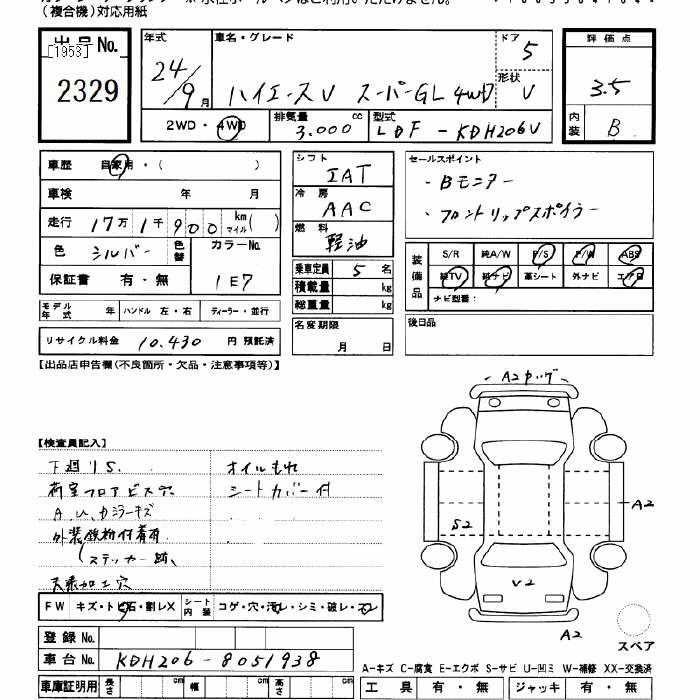 (複合機)対応用紙
出品No.
[1953]
2329
年式
24/9月
車名・グレード
ハイエースV スーパーGL 4WD
ドア
5
形状
V
評価点
3.5
内装
B
2WD・4WD
排気量
3.000cc
型式
LDF-KDH206V
車歴 自家用・( )
車検 年 月
走行 17万1千900 km マイル( )
色 シルバー 色替
カラーNo.
1E7
保証書 有・無
モデル年式 年 ハンドル 左・右 ディーラー・並行
リサイクル料金 10.430 円 預託済
シフト
IAT
冷房
AAC
燃料
軽油
乗車定員 5 名
積載量 kg
総重量 kg
名変期限
月 日
セールスポイント
・Bモニター
・フロントリップスポイラー
装備品
S/R 純A/W P/S P/W ABS
純TV 純ナビ 革シート 外ナビ エアB
ナビ型番:
後日品
【出品店申告欄(不良箇所・欠品・注意事項等)】
【検査員記入】
下廻りS.
荷室フロアビス穴
A,U,カミラーキズ
外装鉄粉付着有
ステッカー跡
天張加工穴
オイルもれ
シートカバー付
A2
A2
S2
V2
A2
スペア
FW キズ・トビ石・割レX シート内装 コゲ・穴・汚レ・シミ・破レ・
登録No.
車台No. KDH206-8051938
車庫証明用 長さ cm 幅 cm 高さ cm
A-キズ C-腐食 E-エクボ S-サビ U-凹ミ W-補修 XX-交換済
工具 有・無 ジャッキ 有・無